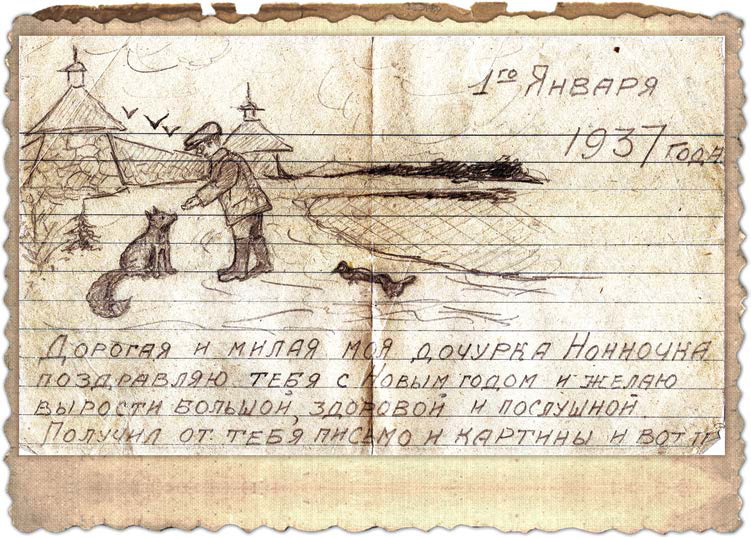 1го Января
1937 года
Дорогая и милая моя дочурка Нонночка
поздравляю тебя с Новым годом и желаю
вырости большой, здоровой и послушной.
Получил от тебя письмо и картины и вот